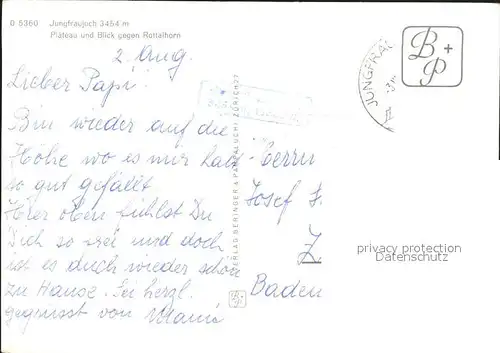 D 5360 Jungfraujoch 3454 m
Plateau und Blick gegen Rottalhorn
2. Aug.
Lieber Papi!
Bin wieder auf die
Höhe wo es mir halt
so gut gefällt
Hier oben fühlst Du
Dich so frei und doch
ist es auch wieder schön
zu Hause. Sei herzl.
gegrüsst von Mami
VERLAG BERINGER & PAMPALUCHI ZÜRICH
JUNGFRAU
B + P
Herrn
Josef F.
Z.
Baden
privacy protection
Datenschutz